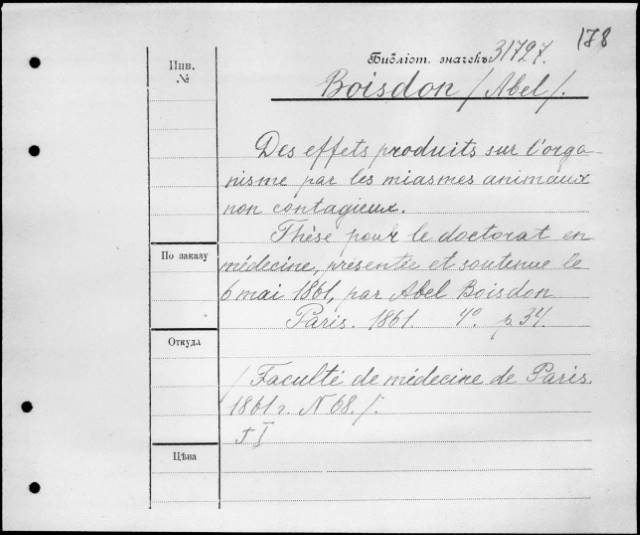 178
Библіот. значекъ 31727.
Boisdon / Abel /.
Инв.
№
Des effets produits sur l'orga-
nisme par les miasmes animaux
non contagieux.
Thèse pour le doctorat en
По заказу
médecine, présentée et soutenue le
6 mai 1861, par Abel Boisdon
Paris. 1861. 4°. p. 34.
Откуда
/ Faculté de médecine de Paris.
1861 г. N 68. /.
т I
Цѣна